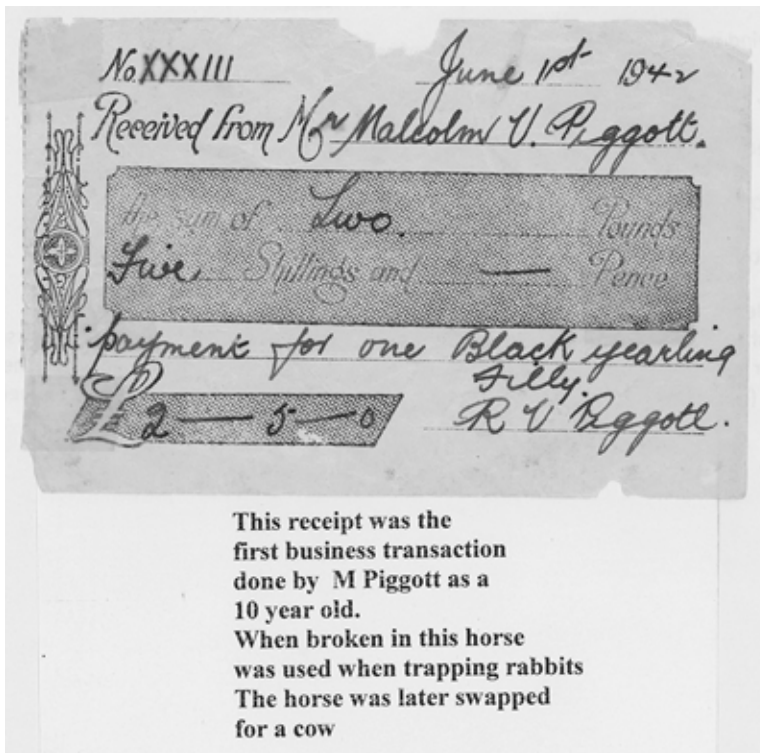 No. XXXIII June 1st 1942
Received from Mr Malcolm V. Piggott.
the sum of Two. Pounds
Five Shillings and — Pence
payment for one Black yearling
Filly.
£ 2 — 5 — 0 R V Piggott.
This receipt was the
first business transaction
done by M Piggott as a
10 year old.
When broken in this horse
was used when trapping rabbits
The horse was later swapped
for a cow